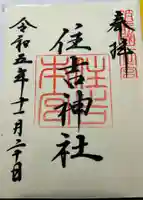 奉拝
住吉神社
令和五年十一月二十日